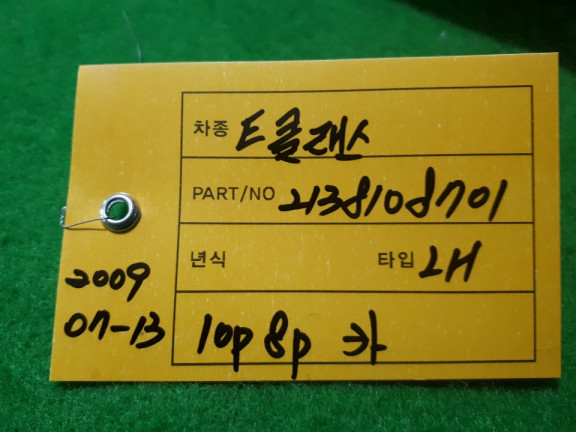 차종 E클래스
PART/NO 2138108701
년식 타입 LH
2009
07-13
10p 8p 카